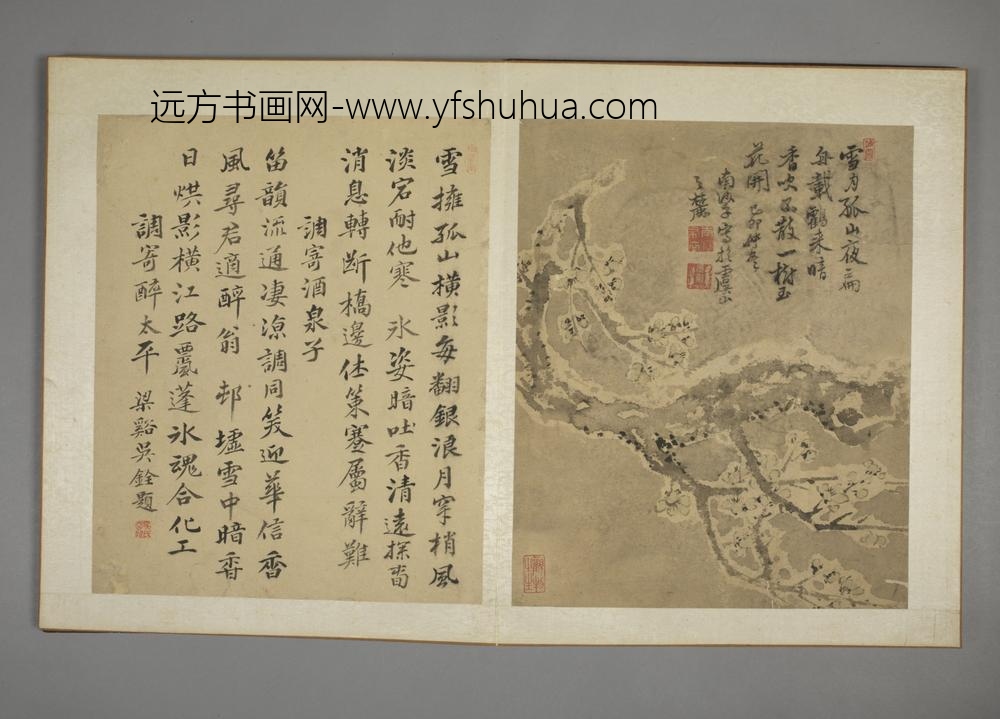 远方书画网-www.yfshuhua.com
雪月孤山夜扁
舟載鶴来暗
香吹不散一樹玉
花開 己卯仲冬
南沙 寫於 山
之麓
雪擁孤山橫影每翻銀浪月穿梢風
淡宕耐他寒 氷姿暗吐香清遠探旾
消息轉斷橋邊住策蹇屬辭難
調寄酒泉子
笛韻流通淒涼調同筴迎華信香
風尋君適醉翁 邨墟雪中暗香
日烘影橫江路 蓬氷魂合化工
調寄醉太平 梁谿吳銓題